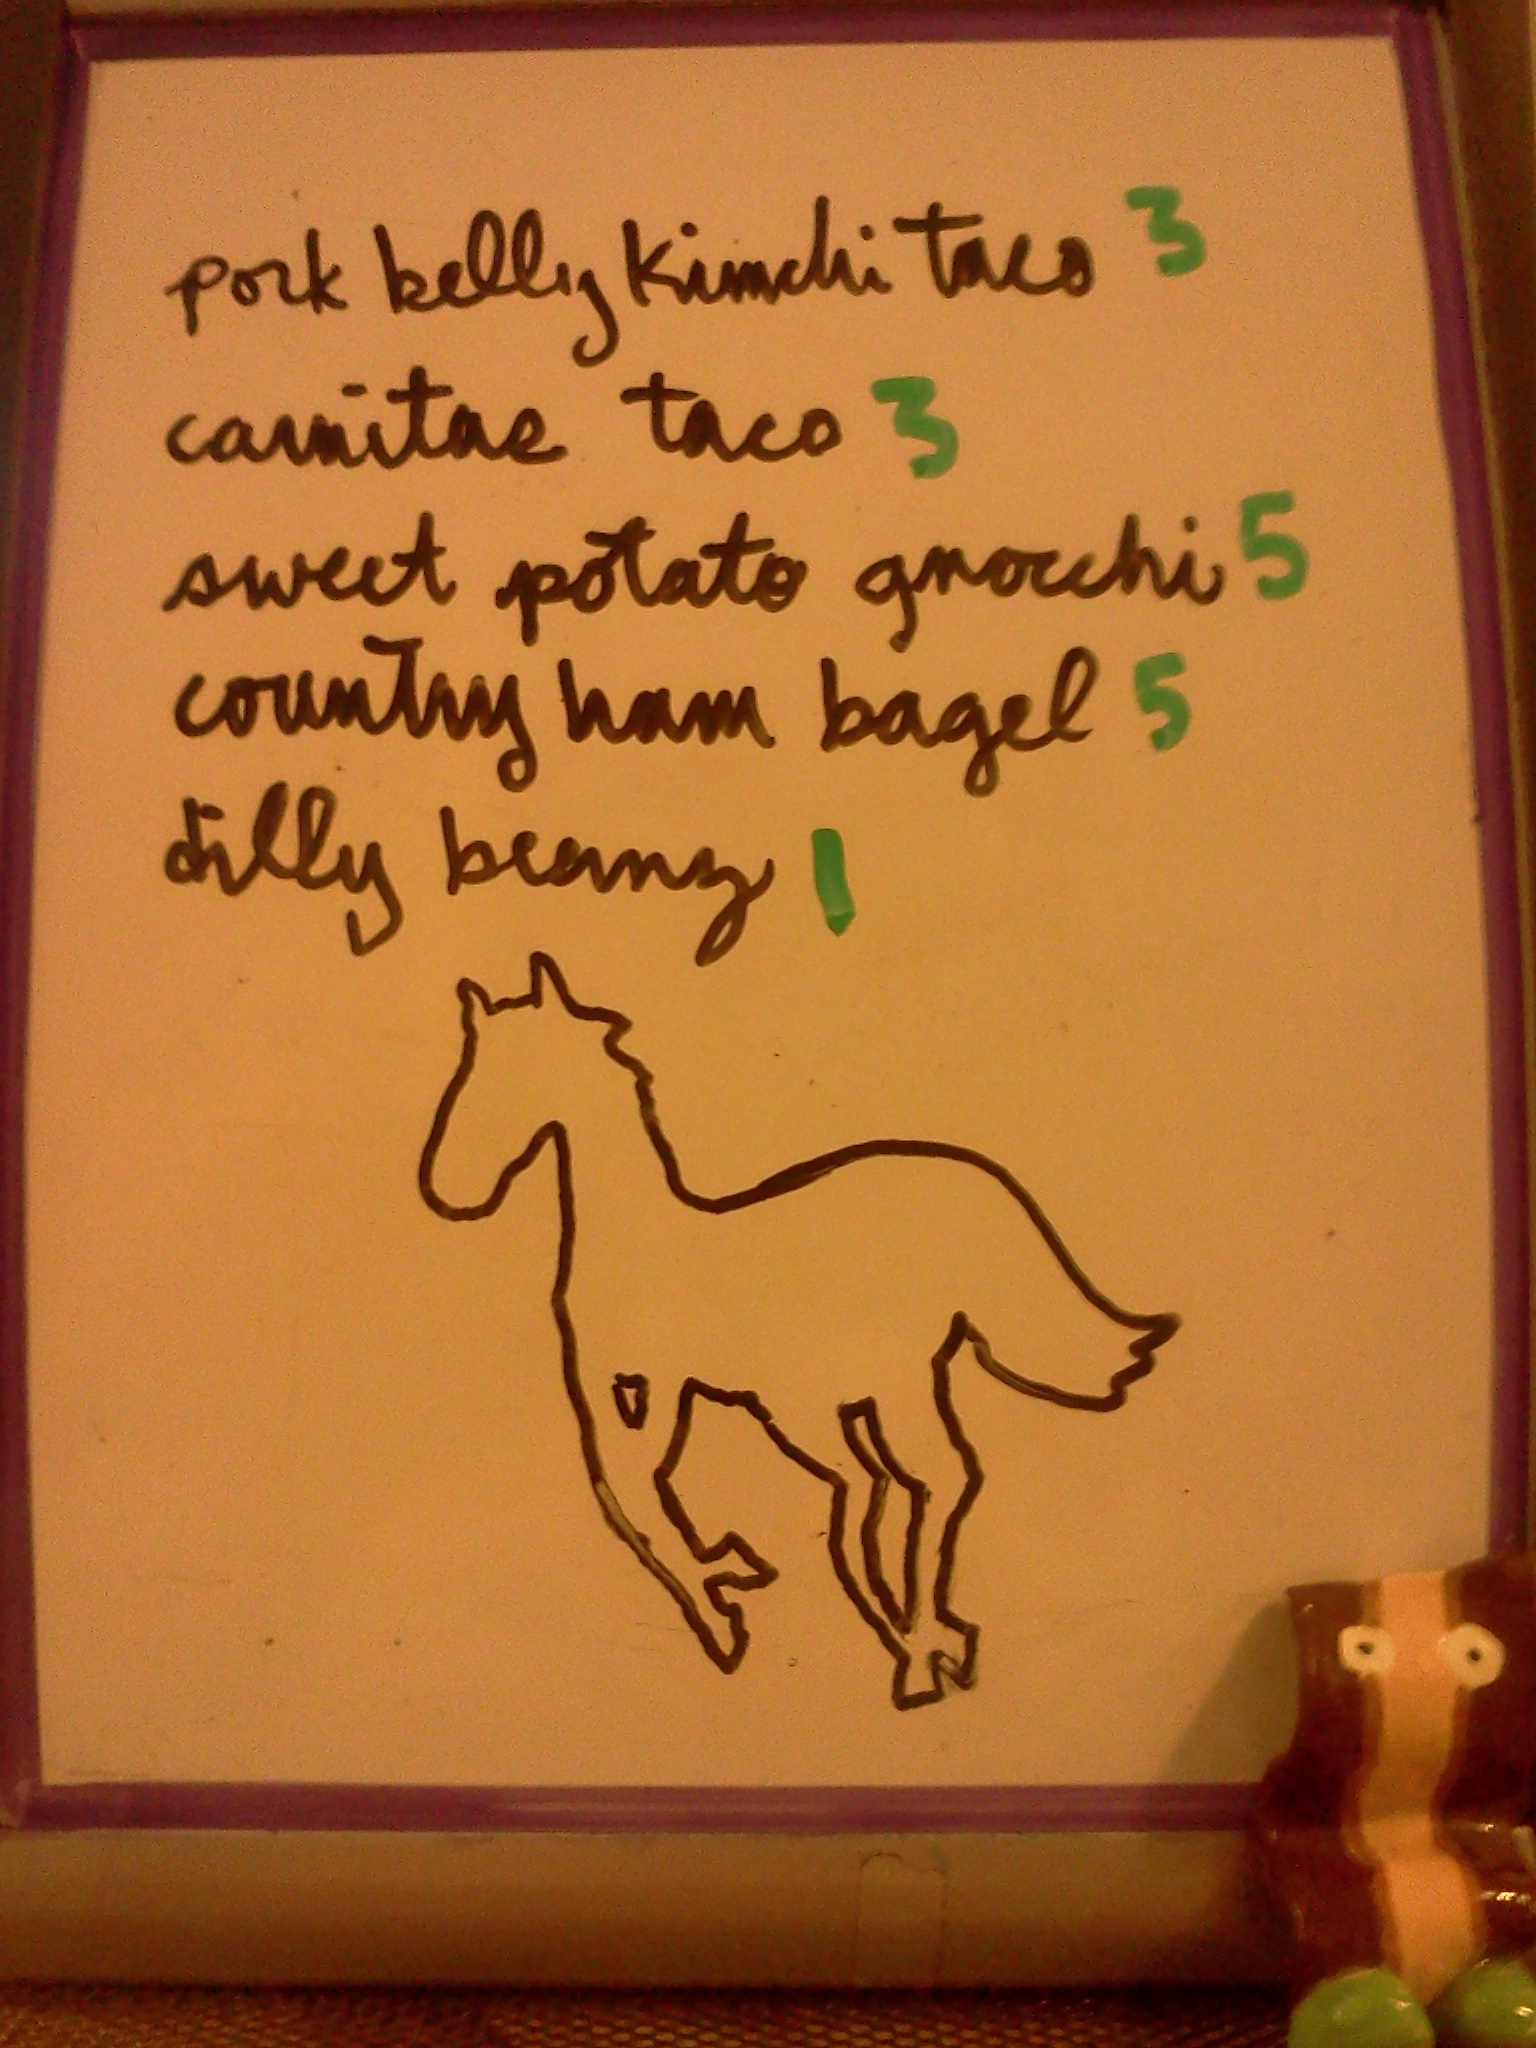 pork belly kimchi taco 3
carnitas taco 3
sweet potato gnocchi 5
country ham bagel 5
dilly beanz 1